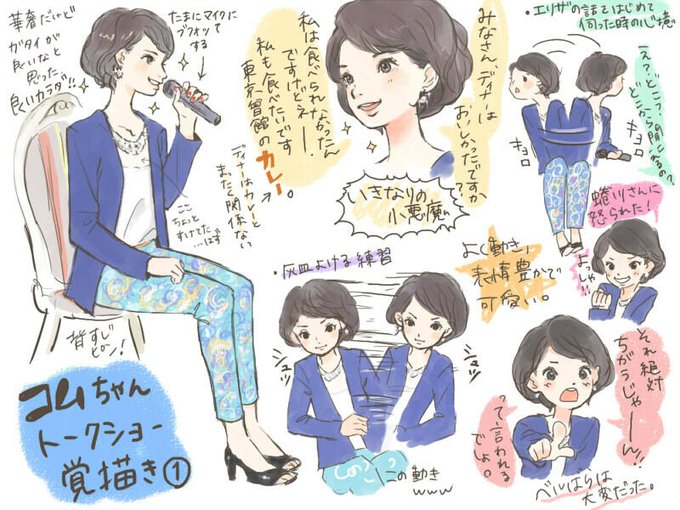 華奢だけど
ガタイが
良いなと
思った
良いカラダ!!
たまにマイクに
ブフォッて
する
みなさん、ディナーは
おいしかったですか?
私は食べられなかったん
ですけどネー。
私も食べたいです
東京會館の
カレー。
ディナーはカレーと
まったく関係ない
いきなりの
小悪魔
ここ
ちょっと
すけてた…はず
背すじ
ピン!
コムちゃん
トークショー
覚描き①
・エリザの話をはじめて
伺った時の心境
え?どこっ?
どこから聞こえるの?
キョロ
キョロ
蜷川さんに
怒られた!
よっしゃ!!
よく動き、
表情豊かで
可愛い。
・灰皿よける練習
シュッ
シュッ
この動き
www
それ絶対
ちがうじゃーん!!
って言われる
でしょ。
ベルばらは
大変だった。